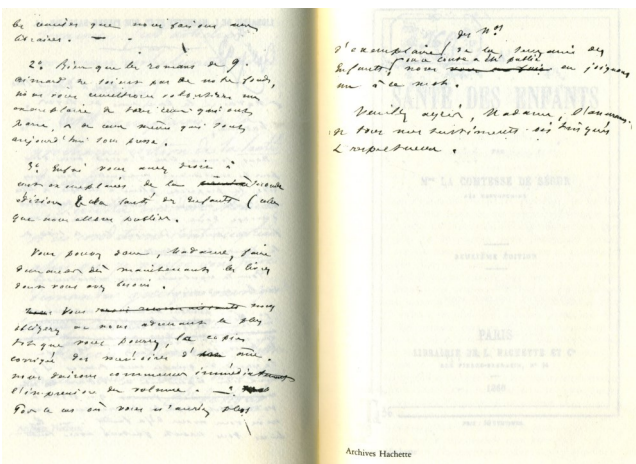 les remises que nous faisons aux
libraires. —
2° Bien que les romans de G.
Aimard ne soient pas de notre fonds,
nous vous remettrons volontiers un
exemplaire de tous ceux qui ont
paru, et de ceux même qui sont
aujourd'hui sous presse.
3° Enfin, vous avez droit à
exemplaires de la seconde
édition de la Santé des Enfants (celle
que nous allons publier.
Vous pouvez donc, Madame, faire
dès maintenant les livres
dont vous avez besoin.
Vous nous
obligerez en nous adressant le plus
tôt que vous pourrez, les copies
corrigées des mémoires d'un âne.
nous désirons commencer immédiatement
l'impression du volume. —
Pour le cas où vous n'auriez plus
des Nos
d'exemplaire de la Semaine des
Enfants, où a été publié nous en joignons
un à ce mot.
Veuillez agréer, Madame, l'assurance
de tous nos sentiments distingués
et respectueux.
SANTÉ DES ENFANTS
PAR
Mme LA COMTESSE DE SÉGUR
DEUXIÈME ÉDITION
PARIS
LIBRAIRIE DE L. HACHETTE ET Cie
Archives Hachette